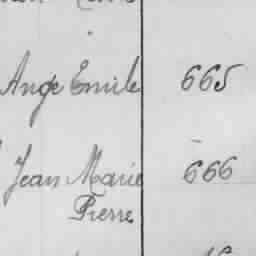 Ange Emile 665
Jean Marie 666
Pierre